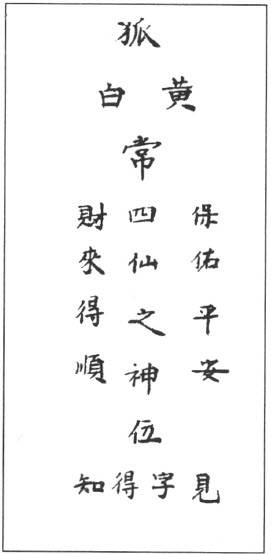 狐
黄白
常
四仙之神位
保佑平安
財來得順
見字得知